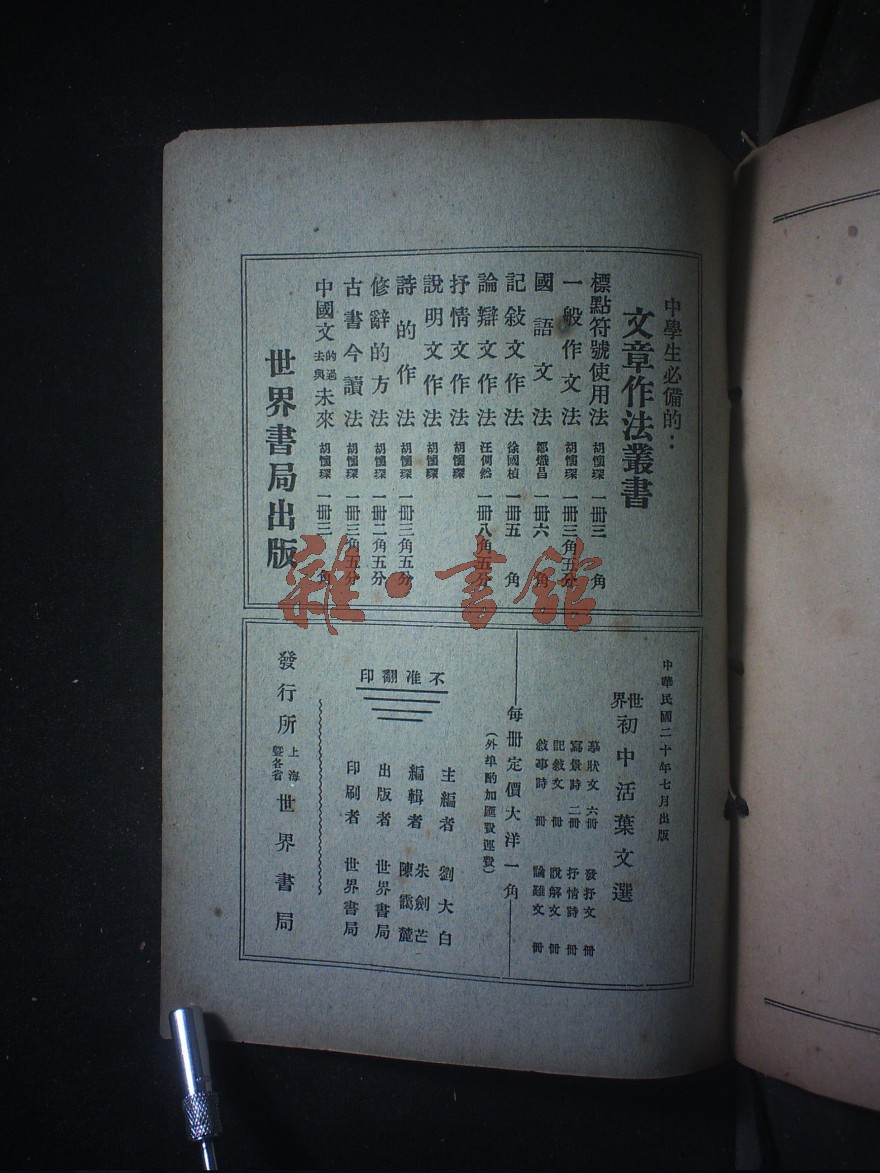 中學生必備的：
文章作法叢書
標點符號使用法 胡懷琛 一冊三角
一般作文法 胡懷琛 一冊三角五分
國語文法 鄒熾昌 一冊六角
記敍文作法 徐國楨 一冊五角
論辯文作法 汪倜然 一冊八角五分
抒情文作法 胡懷琛
說明文作法 胡懷琛
詩的作法 胡懷琛 一冊三角五分
修辭的方法 胡懷琛 一冊二角五分
古書今讀法 胡懷琛 一冊三角五分
中國文的過去與未來 胡懷琛 一冊三角
世界書局出版
雜·書館
中華民國二十年七月出版
世界初中活葉文選
摹狀文 六冊 發抒文 冊
寫景詩 二冊 抒情詩 冊
記敍文 冊 說解文 冊
敍事詩 冊 論難文 冊
每冊定價大洋一角
(外埠酌加匯費運費)
不准翻印
主編者 劉大白
編輯者 朱劍芒 陳靄麓
出版者 世界書局
印刷者 世界書局
發行所 上海暨各省 世界書局